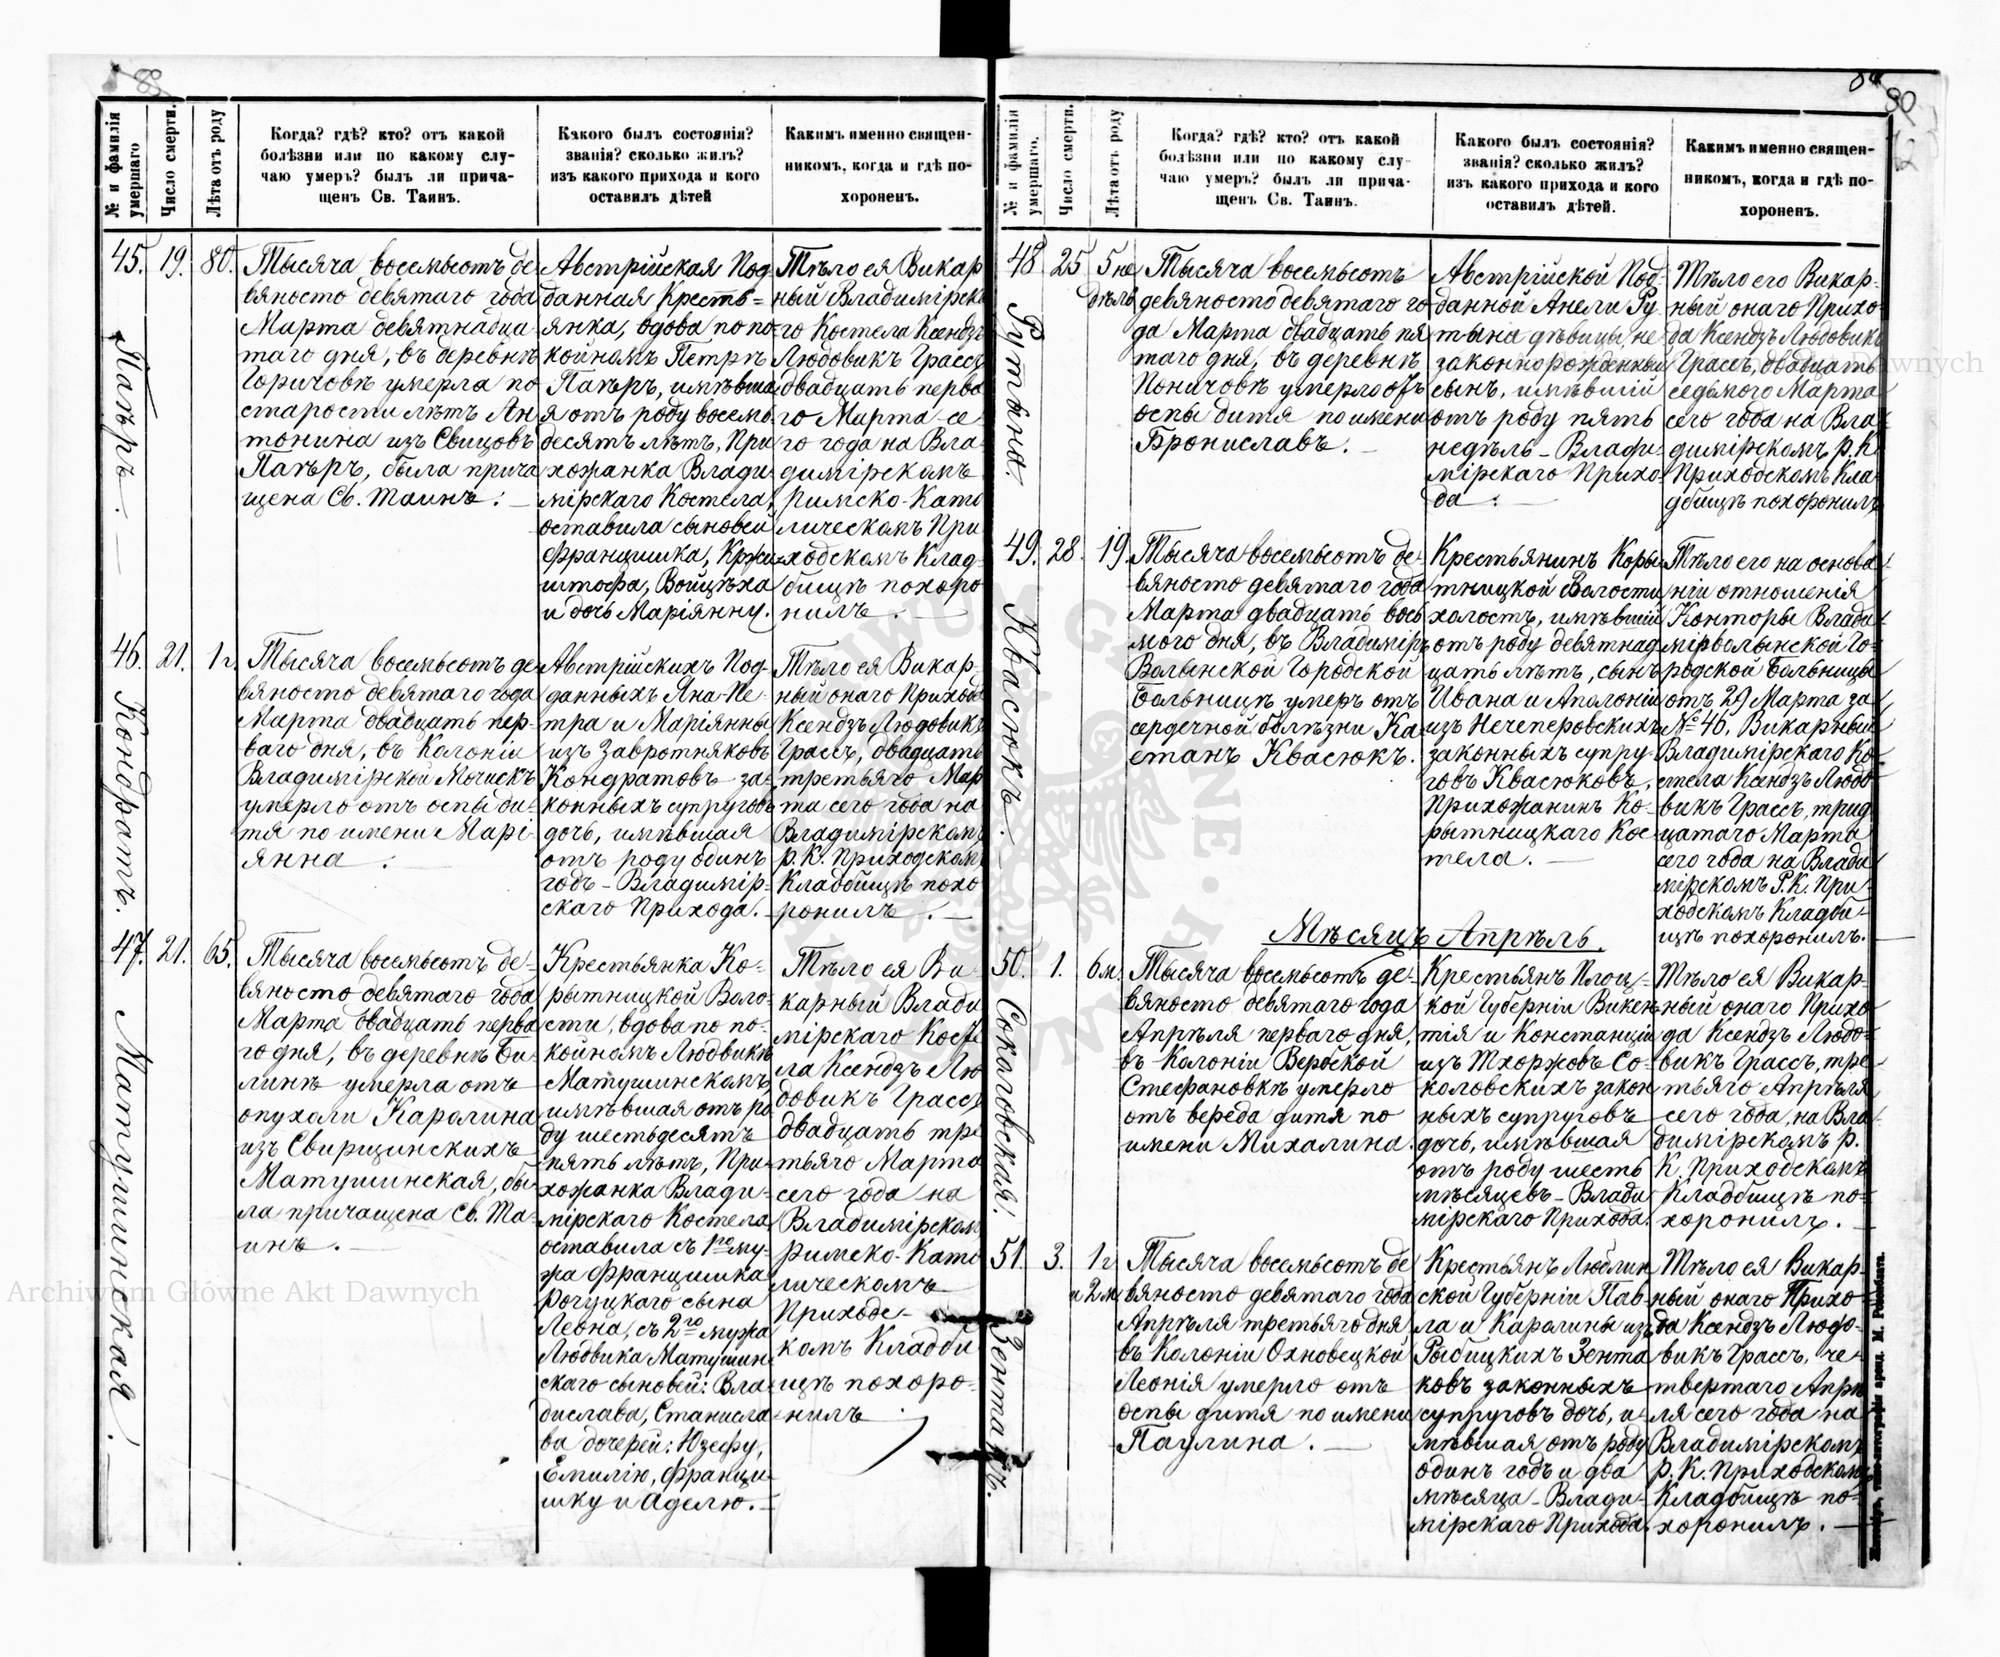 89
№ и фамилія умершаго
Число смерти.
Лѣта отъ роду
Когда? гдѣ? кто? отъ какой
болѣзни или по какому слу-
чаю умеръ? былъ ли прича-
щенъ Св. Таинъ.
Какого былъ состоянія?
званія? сколько жилъ?
изъ какого прихода и кого
оставилъ дѣтей
Какимъ именно священ-
никомъ, когда и гдѣ по-
хороненъ.
45.
Пакѣръ.
19.
80.
Тысяча восемьсотъ де
вяносто девятаго года
Марта девятнадца
таго дня, въ деревнѣ
Горичовѣ умерла по
старости лѣтъ Ан
тонина изъ Свицовъ
Пакѣръ, была прича
щена Св. Таинъ.
Австрійская Под
данная Кресть=
янка, вдова по по
койномъ Петрѣ
Пакѣръ, имѣвша
я отъ роду восемь
десятъ лѣтъ, При
хожанка Влади
мірскаго Костела,
оставила сыновей
Францишка, Кржи
штофа, Войцѣха
и дочь Маріянну.
Тѣло ея Викар
ный Владимірска
го Костела Ксендзъ
Людовикъ Грассъ
двадцать перва
го Марта се
го года на Вла
димірскомъ
римско-Като
лическомъ При
ходскомъ Клад
бищѣ похоро
нилъ.
46.
Кондратъ.
21.
1 г.
Тысяча восемьсотъ де
вяносто девятаго года
Марта двадцать пер
ваго дня, въ Колоніи
Владимірской
умерло отъ оспы ди-
тя по имени Марі-
янна.
Австрійскихъ Под
данныхъ Яна-Пе-
тра и Маріянны
изъ Завротняковъ
Кондратовъ за-
конныхъ супруговъ
дочь, имѣвшая
отъ роду одинъ
годъ - Владимір-
скаго Прихода.
Тѣло ея Викар-
ный онаго Прихода
Ксендзъ Людовикъ
Грассъ, двадцать
третьяго Мар
та сего года на
Владимірскомъ
р. К. Приходскомъ
Кладбищѣ похо
ронилъ.
47.
Матушинская.
21.
65.
Тысяча восемьсотъ де-
вяносто девятаго года
Марта двадцать перва
го дня, въ деревнѣ Би-
линѣ умерла отъ
опухоли Каролина
изъ Свирщинскихъ
Матушинская, бы-
ла причащена Св. Та-
инъ.
Крестьянка Ко-
рытницкой Воло-
сти, вдова по по-
койномъ Людвикѣ
Матушинскомъ
имѣвшая отъ ро
ду шестьдесятъ
пять лѣтъ, При-
хожанка Влади-
мірскаго Костела
оставила съ 1го му-
жа Францишка
Рогуцкаго сына
Леона, съ 2го мужа
Людвика Матушин
скаго сыновей: Вла
дислава, Станисла
ва дочерей: Юзефу,
Емилію, Франци-
шку и Аделю.
Тѣло ея Ви-
карный Влади
мірскаго Косте
ла Ксендзъ Лю
довикъ Грассъ
двадцать тре
тьяго Марта
сего года на
Владимірском
римско-Като
лическомъ
Приходс-
комъ Кладби
щѣ похоро-
нилъ
90
№ и фамилія умершаго.
Число смерти.
Лѣта отъ роду
Когда? гдѣ? кто? отъ какой
болѣзни или по какому слу-
чаю умеръ? былъ ли прича-
щенъ Св. Таинъ.
Какого былъ состоянія?
званія? сколько жилъ?
изъ какого прихода и кого
оставилъ дѣтей.
Какимъ именно священ-
никомъ, когда и гдѣ по-
хороненъ.
48
Рутына.
25
5 не
дѣль
Тысяча восемьсотъ
девяносто девятаго го
да Марта двадцать пя
таго дня, въ деревнѣ
Поничовѣ умерло отъ
оспы дитя по имени
Брониславъ.
Австрійской Под-
данной Анели Ру
тына дѣвицы, не
законнорожденный
сынъ, имѣвшій
отъ роду пять
недѣль - Влади-
мірскаго Прихо-
да.
Тѣло его Викар-
ный онаго Прихо-
да Ксендзъ Людовикъ
Грассъ, двадцать
седьмого Марта
сего года на Вла-
димірскомъ р. К.
Приходскомъ Кла-
дбищѣ похоронилъ
49.
Квасюкъ.
28.
19.
Тысяча восемьсотъ де-
вяносто девятаго года
Марта двадцать вось
мого дня, въ Владимір
Волынской Городской
Больницѣ умеръ отъ
сердечной болѣзни Ка
етанъ Квасюкъ.
Крестьянинъ Коры
тницкой Волости
холостъ, имѣвшій
отъ роду девятнад
цать лѣтъ, сынъ
Ивана и Аполоніи
изъ Нечеперовскихъ
законныхъ супру-
говъ Квасюковъ,
Прихожанинъ Ко-
рытницкаго Кос
тела.
Тѣло его на основа
ніи отношенія
Конторы Влади
мірволынской Го-
родской Больницы
отъ 29 Марта за
№ 46, Викарный
Владимірскаго Ко-
стела Ксендзъ Людо
викъ Грассъ, трид
цатаго Марта
сего года на Влади
мірскомъ Р. К. При-
ходскомъ Кладби-
щѣ похоронилъ.
Мѣсяцъ Апрѣль.
50.
Соколовская.
1.
6 м.
Тысяча восемьсотъ де-
вяносто девятаго года
Апрѣля перваго дня,
въ Колоніи Вербской
Стефановкѣ умерло
отъ вереда дитя по
имени Михалина.
Крестьянъ Плоц-
кой Губерніи Викен
тія и Констанціи
изъ Тхоржовъ Со-
коловскихъ закон
ныхъ супруговъ
дочь, имѣвшая
отъ роду шесть
мѣсяцевъ - Влади
мірскаго Прихода.
Тѣло ея Викар-
ный онаго Прихо
да Ксендзъ Людо-
викъ Грассъ, тре
тьяго Апрѣля
сего года, на Вла-
димірскомъ р.
К. Приходскомъ
Кладбищѣ по-
хоронилъ.
51.
Зентакъ.
3.
1 г.
и 2 м.
Тысяча восемьсотъ де
вяносто девятаго года
Апрѣля третьяго дня
въ Колоніи Охновецкой
Леонія умерло отъ
оспы дитя по имени
Паулина.
Крестьянъ Люблин
ской Губерніи Пав-
ла и Каролины изъ
Рыбицкихъ Зента
ковъ законныхъ
супруговъ дочь, и-
мѣвшая отъ роду
одинъ годъ и два
мѣсяца - Влади-
мірскаго Прихода.
Тѣло ея Викар-
ный онаго Прихо
да Ксендзъ Людо-
викъ Грассъ, че-
твертаго Апрѣ
ля сего года на
Владимірскомъ
р. К. Приходскомъ
Кладбищѣ по-
хоронилъ.
Archiwum Główne Akt Dawnych